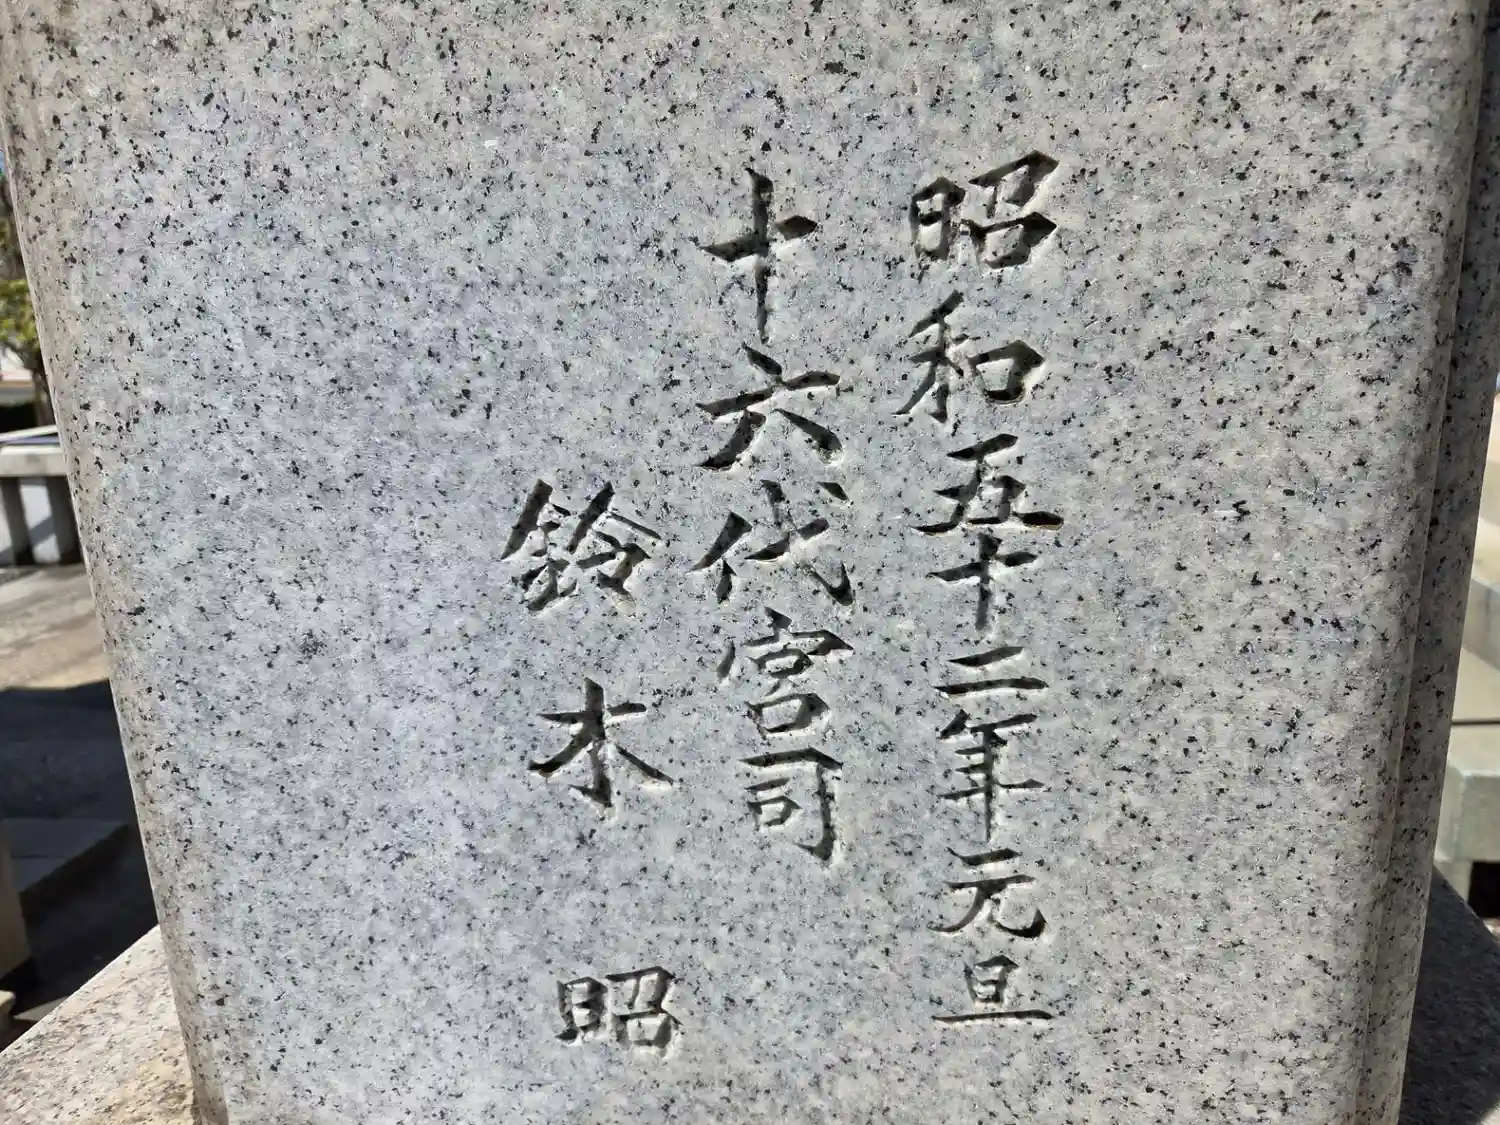 昭和五十二年元旦
十六代宮司
鈴木昭